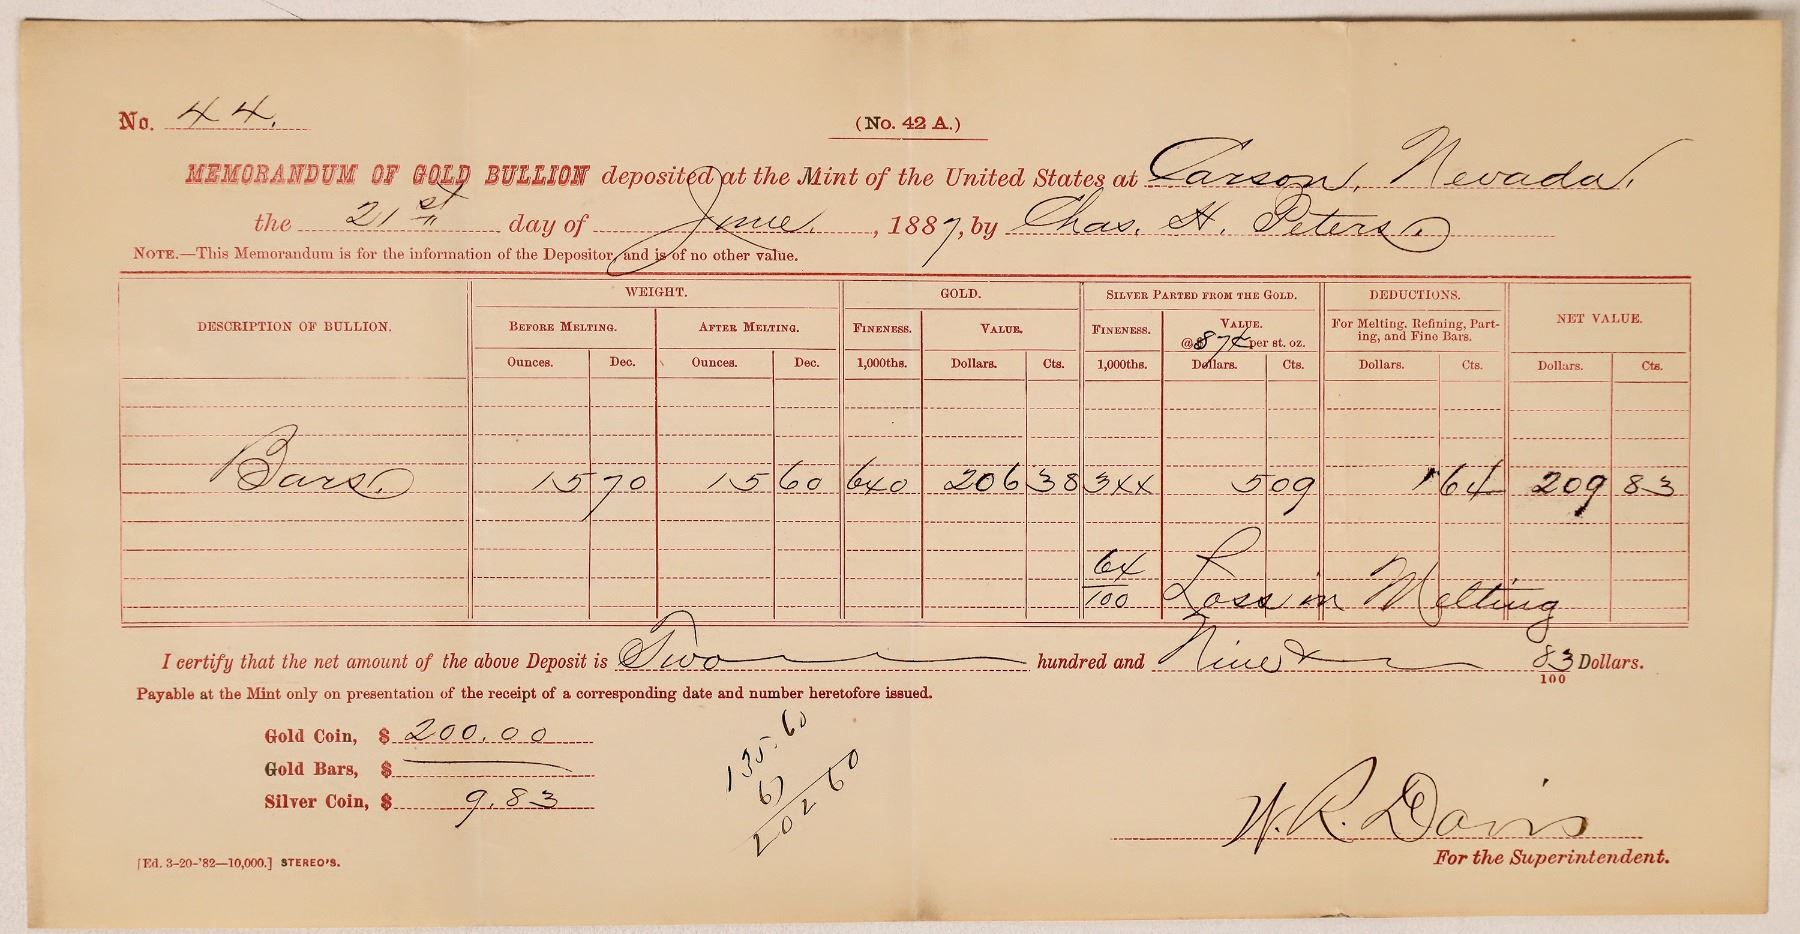 No. 44.
(No. 42 A.)
MEMORANDUM OF GOLD BULLION deposited at the Mint of the United States at Carson, Nevada.
the 21st day of June, 1887, by Chas. H. Peters.
NOTE.—This Memorandum is for the information of the Depositor, and is of no other value.
DESCRIPTION OF BULLION. WEIGHT. GOLD. SILVER PARTED FROM THE GOLD. DEDUCTIONS. NET VALUE.
BEFORE MELTING. AFTER MELTING. FINENESS. VALUE. FINENESS. VALUE. @ $ per st. oz. For Melting, Refining, Parting, and Fine Bars.
Ounces. Dec. Ounces. Dec. 1,000ths. Dollars. Cts. 1,000ths. Dollars. Cts. Dollars. Cts. Dollars. Cts.
Bars. 15 70 15 60 640 206 38 344 5 09 1 64 209 83
64/100 Loss in Melting
I certify that the net amount of the above Deposit is Two hundred and Nine & 83/100 Dollars.
Payable at the Mint only on presentation of the receipt of a corresponding date and number heretofore issued.
Gold Coin, $ 200.00
Gold Bars, $
Silver Coin, $ 9.83
135.60
67
20260
W. R. Davis
For the Superintendent.
[Ed. 3-20-'82—10,000.] STEREO'S.